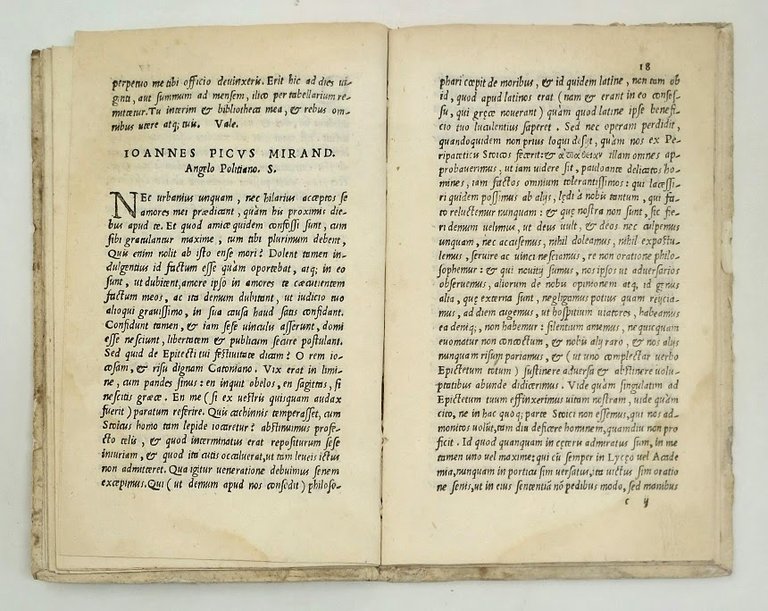 perpetuo me tibi officio deuinxeris. Erit hic ad dies ui-
ginti, aut summum ad mensem, ilico per tabellarium re-
mittetur. Tu interim & bibliotheca mea, & rebus om-
nibus utere atq; tuis. Vale.
IOANNES PICVS MIRAND.
Angelo Politiano. S.
NEc urbanius unquam, nec hilarius acceptos se
amores mei prædicant, quàm hu proximis die-
bus apud te. Et quod amicè quidem confossi sunt, cum
sibi gratulantur maxime, tum tibi plurimum debent,
Quis enim nolit ab isto ense mori? Dolent tamen in-
dulgentius id factum esse quàm oportebat, atq; in eo
sunt, ut dubitent, amore ipso in amores te cæcutientem
factum meos, ac ita demum dubitant, ut iudicio tuo
alioqui grauissimo, in sua causa haud satis confidant.
Confidunt tamen, & iam sese uinculis asserunt, domi
esse nesciunt, libertatem & publicum secure postulant.
Sed quid de Epictecti tui festiuitate dicam? O rem io-
cosam, & risu dignam Catoniano. Vix erat in limi-
ne, cum pandes sinus: en inquit obelos, en sagittas, si
nescitis græcè. En me (si ex uestris quisquam audax
fuerit) paratum referire. Quis cachinnis temperasset, cum
Stoicus homo tam lepide iocaretur? abstinuimus profe-
cto telis, & quod interminatus erat repositurum sese
iniuriam, & quod ita cutis occaluerat, ut tam leueis ictus
non admitteret. Qua igitur ueneratione debuimus senem
excepimus. Qui (ut demum apud nos consedit) philoso-
18
phari cœpit de moribus, & id quidem latine, non tam ob
id, quod apud latinos erat (nam & erant in eo consef-
su, qui græcè nouerant) quàm quod latine ipse benefi-
cio tuo luculentius saperet. Sed nec operam perdidit,
quandoquidem non prius loqui desijt, quàm nos ex Pe-
ripateticis Stoicos fecerit: & illam omnes ap-
probauerimus, ut iam uidere sit, pauloante delicatos ho-
mines, iam factos omnium tolerantissimos: qui lacessi-
ri quidem possimus ab alijs, lędi à nobis tantum, qui fa-
to reluctemur nunquam: & quę nostra non sunt, sic fie-
ri demum uelimus, ut deus uult, & deos nec culpemus
unquam, nec accusemus, nihil doleamus, nihil expostu-
lemus, seruire ac uinci nesciamus, re non oratione philo-
sophemur: & qui nouitij sumus, nos ipsos ut aduersarios
obseruemus, aliorum de nobis opinionem atq; id genus
alia, quę externa sunt, negligamus potius quam reijcia-
mus, ad diem augemus, ut hospitum uiatores, habeamus
ea deniq; non habemur: silentium amemus, ne quicquam
euomatur non concoctum, & nobis alijs raro, & nos alijs
nunquam risum pariamus, & (ut uno complectar uerbo
Epictetum totum) sustinere aduersa & abstinere uolu-
ptatibus abunde didicerimus. Vide quàm singulatim ad
Epictetum tuum effinxerimus uitam nostram, uide quàm
cito, ne in hac quoq; parte Stoici non essemus, qui nos ad-
monitos uolŭt, tam diu deficere hominem, quamdiu non pro
ficit. Id quod quanquam in cęteris admiratus sum, in me
tamen uno uel maxime; qui cũ semper in Lycęo uel Acade
mia, nunquam in porticu sim uersatus, ita uictus sim oratio
ne senis, ut in eius sententiã nõ pedibus modo, sed manibus
c ij